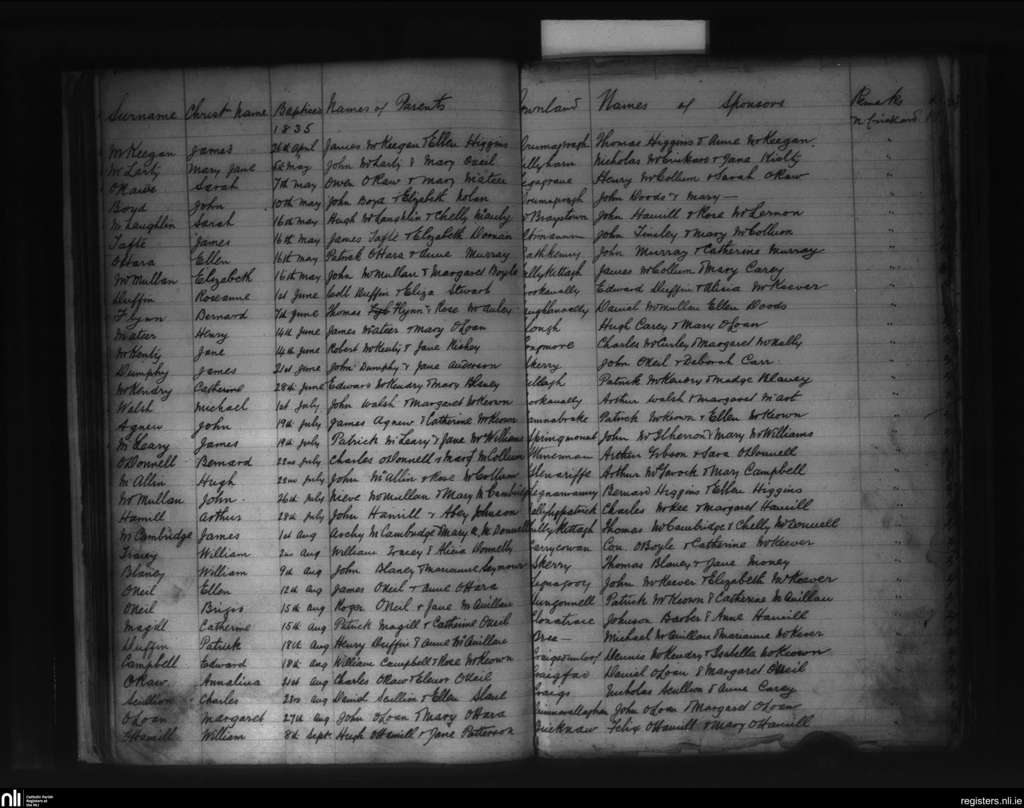 Surname Christ Name Baptised Names of Parents ownland Names of Sponsors Remarks
1835
McKeegan James 26th April James McKeegan & Ellen Higgins Thomas Higgins & Anne McKeegan
McLarty Mary Jane 5th May John McLarty & Mary Oneil Nicholas McCrickard & Jane
ORawe Sarah 7th May Owen ORaw & Mary Henry McCollum & Sarah ORaw
Boyd John 10th May John Boyd & Elizabeth Nolan John Woods & Mary —
McLaughlin Sarah 16th May Hugh McLaughlin & Chelly John Hamill & Rose McLernon
Tafte James 16th May James Tafte & Elizabeth John Tinsley & Mary McCollum
OHara Ellen 16th May Patrick OHara & Anne Murray John Murray & Catherine Murray
McMullan Elizabeth 16th May John McMullan & Margaret Boyle James McCollum & Mary Carey
Duffin Roseanne 1st June Coll Duffin & Eliza Stewart Edward Duffin & Alicia McKeever
Flynn Bernard 7th June Thomas Flynn & Rose McAuley Daniel McMullan Ellen Woods
Henry 14th June James & Mary OLoan Hugh Carey & Mary OLoan
McKenty Jane 14th June Robert McKenty & Jane Charles McCurley & Margaret McNally
Dumphy James 21st June John Dumphy & Jane Anderson Skerry John ONeil & Deborah Carr
McKendry Catherine 28th June Edward McKendry & Mary Blaney Patrick McKendry & Madge Blaney
Walsh Michael 1st July John Walsh & Margaret McKeown Arthur Walsh & Margaret
Agnew John 19th July James Agnew & Catherine McKeown Patrick McKeown & Ellen McKeown
McLeary James 19th July Patrick McLeary & Jane McWilliams Springmount John McIlherron & Mary McWilliams
ODonnell Bernard 22nd July Charles ODonnell & Mary McCollum Arthur Gibson & Sara ODonnell
McAllin Hugh 22nd July John McAllin & Rose McCollum Glenariffe Arthur & Mary Campbell
McMullan John 26th July Neive McMullan & Mary McCambridge Bernard Higgins & Ellen Higgins
Hamill Arthur 28th July John Hamill & Abey Johnson allyfitzpatrick Charles McKee & Margaret Hamill
McCambridge James 1st Aug Archy McCambridge & Mary A. McDonnell Thomas McCambridge & Chelly McDonnell
Tracey William 2nd Aug William Tracey & Alicia Donnelly Carrycowan Con. OBoyle & Catherine McKeever
Blaney William 9th Aug John Blaney & Marianne Seymour Skerry Thomas Blaney & Jane Mooney
ONeil Ellen 12th Aug James ONeil & Anne OHara John McKeever & Elizabeth McKeever
ONeil Brigis 15th Aug Roger ONeil & Jane McQuillan Patrick McKeown & Catherine McQuillan
Magill Catherine 15th Aug Patrick Magill & Catherine ONeil Johnson Barber & Anne Hamill
Duffin Patrick 18th Aug Henry Duffin & Anne McQuillan Michael McQuillan & Marianne McKever
Campbell Edward 18th Aug William Campbell & Rose McKeown Dennis McKendry & Isabella McKeown
ORaw Annalina 21st Aug Charles ORaw & Elenor ONeil Craigfad Daniel OLoan & Margaret ONeil
Scullion Charles 23rd Aug David Scullion & Ellen Craigs Nicholas Scullion & Anne Carey
OLoan Margaret 27th Aug John OLoan & Mary OHara John OLoan & Margaret OLoan
OHamill William 8th Sept Hugh OHamill & Jane Patterson Felix OHamill & Mary OHamill
nli Catholic Parish Registers at the NLI
registers.nli.ie